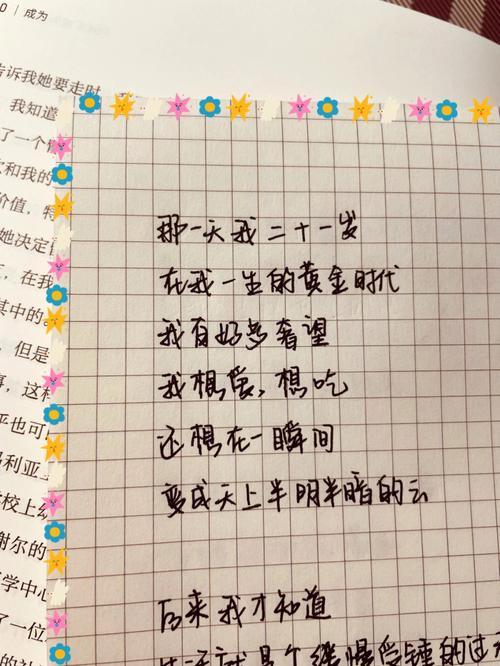 0 | 成为
告诉我她要走时
我知道
了一个
和我的
价值，特
她决定
在我
其中的
但是
这种
平也可
玛利亚
学校上
谢尔的
学中心
了一位
那一天我二十一岁
在我一生的黄金时代
我有好多奢望
我想爱，想吃
还想在一瞬间
变成天上半明半暗的云
后来我才知道
生活就是个缓慢受锤的过